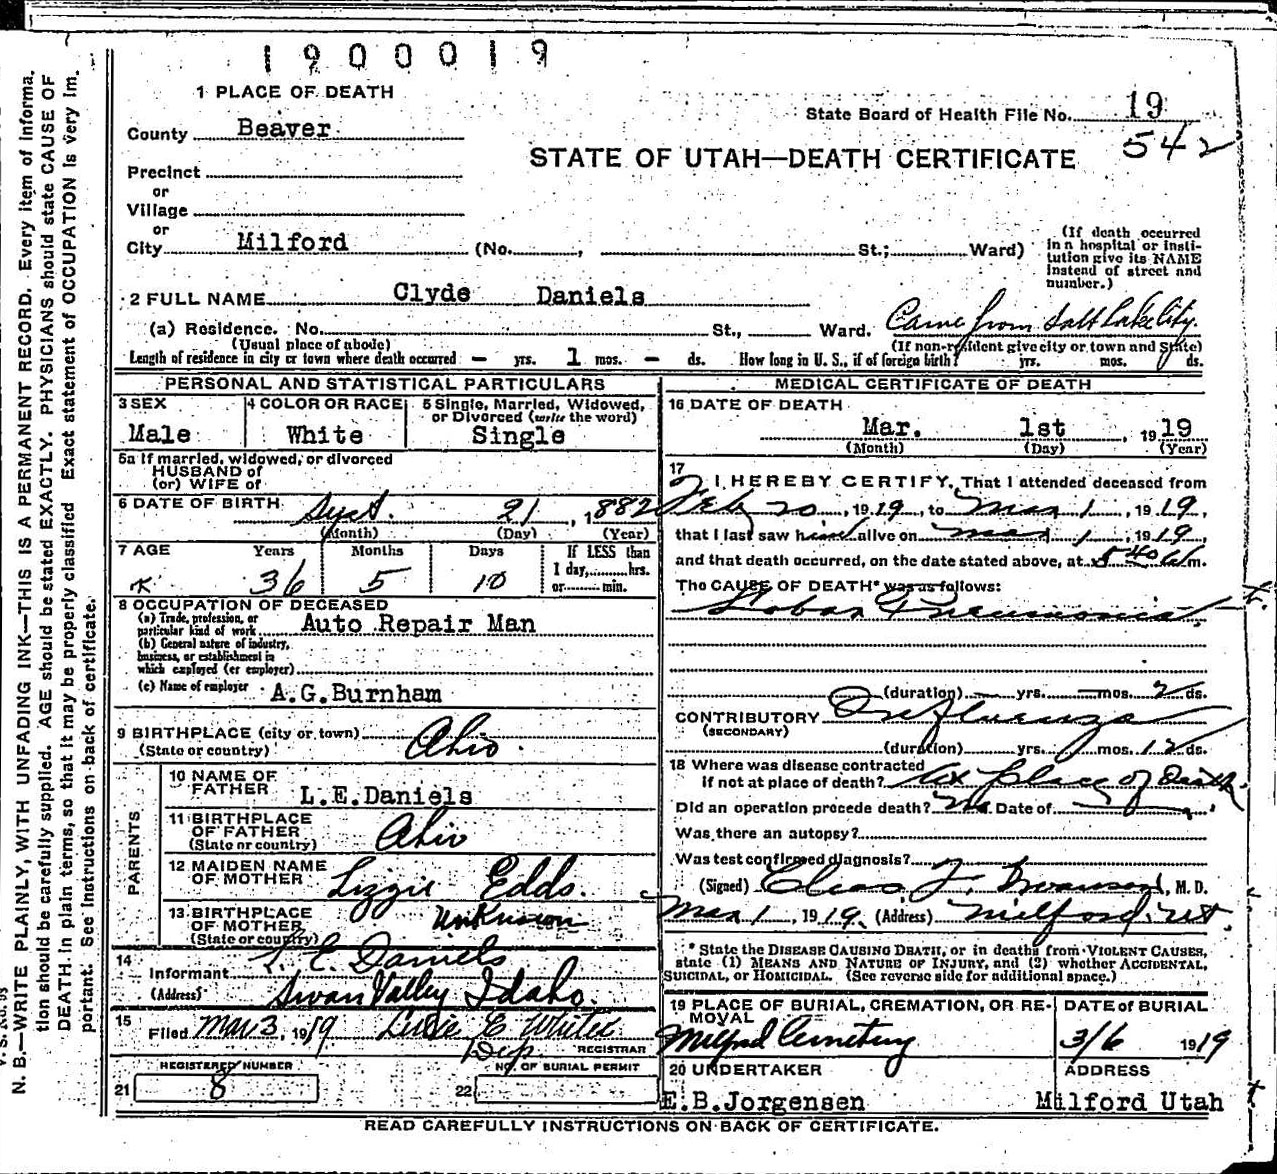 1900019
1 PLACE OF DEATH
State Board of Health File No. 19
County Beaver
542
STATE OF UTAH—DEATH CERTIFICATE
Precinct
or
Village
or
City Milford (No. , St.; Ward)
(If death occurred in a hospital or insti-
tution give its NAME
instead of street and
number.)
2 FULL NAME Clyde Daniels
(a) Residence. No. St., Ward. Came from Salt Lake City.
(Usual place of abode) (If non-resident give city or town and State)
Length of residence in city or town where death occurred — yrs. 1 mos. — ds. How long in U. S., if of foreign birth? yrs. mos. ds.
PERSONAL AND STATISTICAL PARTICULARS
3 SEX 4 COLOR OR RACE 5 Single, Married, Widowed,
or Divorced (write the word)
Male White Single
5a If married, widowed, or divorced
HUSBAND of
(or) WIFE of
6 DATE OF BIRTH Sept. 21, 1882
(Month) (Day) (Year)
7 AGE Years Months Days If LESS than
1 day, hrs.
36 5 10 or min.
8 OCCUPATION OF DECEASED
(a) Trade, profession, or
particular kind of work Auto Repair Man
(b) General nature of industry,
business, or establishment in
which employed (or employer)
(c) Name of employer A.G.Burnham
9 BIRTHPLACE (city or town)
(State or country) Ohio.
PARENTS
10 NAME OF
FATHER L.E.Daniels
11 BIRTHPLACE
OF FATHER
(State or country) Ohio
12 MAIDEN NAME
OF MOTHER Lizzie Edds.
13 BIRTHPLACE
OF MOTHER
(State or country) Unknown
14
Informant L. E. Daniels
(Address) Swan Valley Idaho.
15
Filed Mar 3, 1919 E
Dep REGISTRAR
REGISTERED NUMBER NO. OF BURIAL PERMIT
21 8 22
MEDICAL CERTIFICATE OF DEATH
16 DATE OF DEATH
Mar. 1st, 1919
(Month) (Day) (Year)
17 I HEREBY CERTIFY, That I attended deceased from
Feby 20, 1919, to Mar 1, 1919,
that I last saw him alive on Mar 1, 1919,
and that death occurred, on the date stated above, at 5 40 a m.
The CAUSE OF DEATH* was as follows:
Lobar Pneumonia.
(duration) — yrs. — mos. 2 ds.
CONTRIBUTORY Influenza
(SECONDARY)
(duration) yrs. mos. 12 ds.
18 Where was disease contracted
if not at place of death? At place of Death
Did an operation precede death? No Date of
Was there an autopsy?
Was test confirmed diagnosis?
(Signed) Chas. F. Swanson, M. D.
Mar 1, 1919. (Address) Milford, Ut
* State the DISEASE CAUSING DEATH, or in deaths from VIOLENT CAUSES,
state (1) MEANS AND NATURE OF INJURY, and (2) whether ACCIDENTAL,
SUICIDAL, or HOMICIDAL. (See reverse side for additional space.)
19 PLACE OF BURIAL, CREMATION, OR RE-
MOVAL
Milford Cemetery
DATE of BURIAL
3/6 1919
20 UNDERTAKER ADDRESS
E.B.Jorgensen Milford Utah
READ CAREFULLY INSTRUCTIONS ON BACK OF CERTIFICATE.
N. B.—WRITE PLAINLY, WITH UNFADING INK—THIS IS A PERMANENT RECORD. Every item of informa-
tion should be carefully supplied. AGE should be stated EXACTLY. PHYSICIANS should state CAUSE OF
DEATH in plain terms, so that it may be properly classified. Exact statement of OCCUPATION is very im-
portant. See instructions on back of certificate.